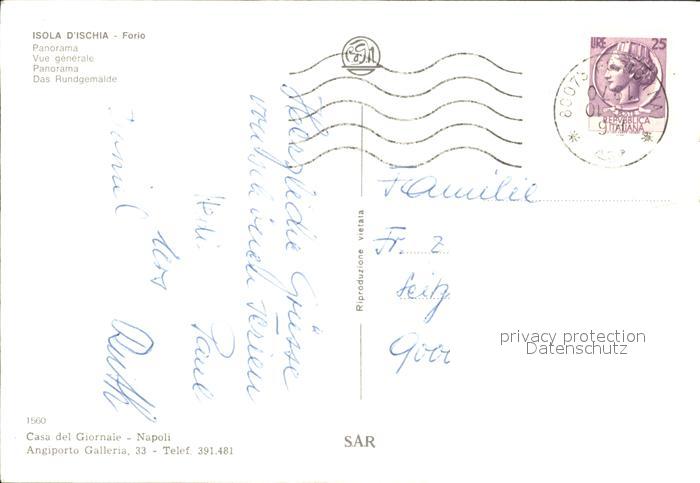 ISOLA D'ISCHIA - Forio
Panorama
Vue générale
Panorama
Das Rundgemälde
LIRE 25
REPVBBLICA
ITALIANA
80075
Herzliche Grüsse
Ferien
Heidi
Paul
Urs
Ruth
Riproduzione vietata
Familie
Fr. z
Seitz
900
privacy protection
Datenschutz
1560
Casa del Giornale - Napoli
Angiporto Galleria, 33 - Telef. 391.481
SAR